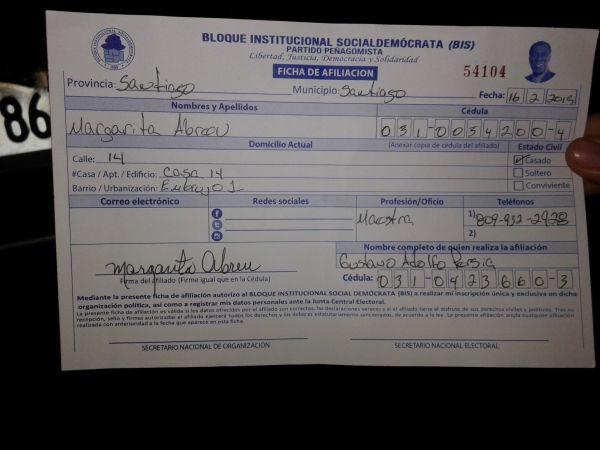 86
BLOQUE INSTITUCIONAL SOCIALDEMÓCRATA (BIS)
PARTIDO PEÑAGOMISTA
Libertad, Justicia, Democracia y Solidaridad
FICHA DE AFILIACION
54104
Provincia: Santiago Municipio: Santiago Fecha: 16/2/2015
Nombres y Apellidos Cédula
Margarita Abreu 031-0054200-4
Domicilio Actual (Anexar copia de cédula del afiliado) Estado Civil
Calle: 14 Casado
#Casa / Apt. / Edificio: Casa 14 Soltero
Barrio / Urbanización: Embrujo 1 Conviviente
Correo electrónico Redes sociales Profesión/Oficio Teléfonos
Maestra 1) 809-932-2928
2)
Nombre completo de quien realiza la afiliación
Margarita Abreu Gustavo Adolfo
Firma del afiliado (Firme igual que en la Cédula) Cédula: 031-0423660-3
Mediante la presente ficha de afiliación autorizo al BLOQUE INSTITUCIONAL SOCIALDEMÓCRATA (BIS) a realizar mi inscripción única y exclusiva en dicha
organización política, así como a registrar mis datos personales ante la Junta Central Electoral.
La presente ficha de afiliación es válida si los datos ofrecidos por el afiliado son correctos, las declaraciones veraces y si el afiliado tiene el disfrute de sus derechos civiles y políticos. Tras su
recepción, sello y firmas autorizadas el afiliado ejercerá todos los derechos y los deberes estatutariamente sancionados, de acuerdo a la ley. La presente afiliación anula cualquier afiliación
realizada con anterioridad a la fecha que aparece en esta ficha.
SECRETARIO NACIONAL DE ORGANIZACIÓN SECRETARIO NACIONAL ELECTORAL